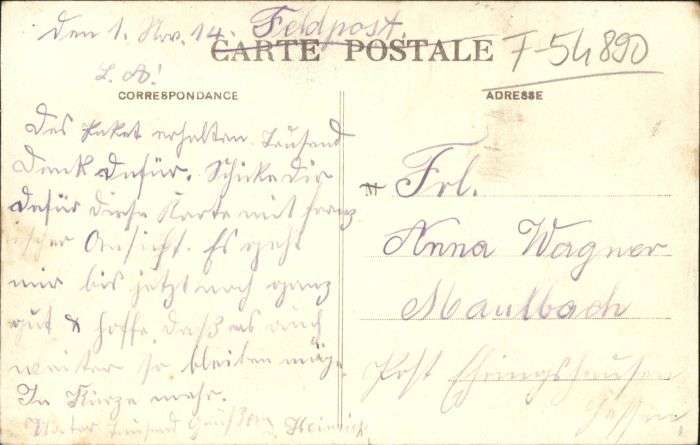 Den 1. Nov. 14. Feldpost
CARTE POSTALE
F-54890
L. A!
CORRESPONDANCE
ADRESSE
Das Paket erhalten. Tausend
Dank dafür. Schicke Dir
dafür diese Karte mit franz
ischer Ansicht. Es geht
mir bis jetzt noch ganz
gut & hoffe daß es auch
weiter so bleiben mög.
In Kürze mehr.
Unter tausend Grüßen Heinrich
M Frl.
Anna Wagner
Maulbach
Post Ehringshausen
Hessen